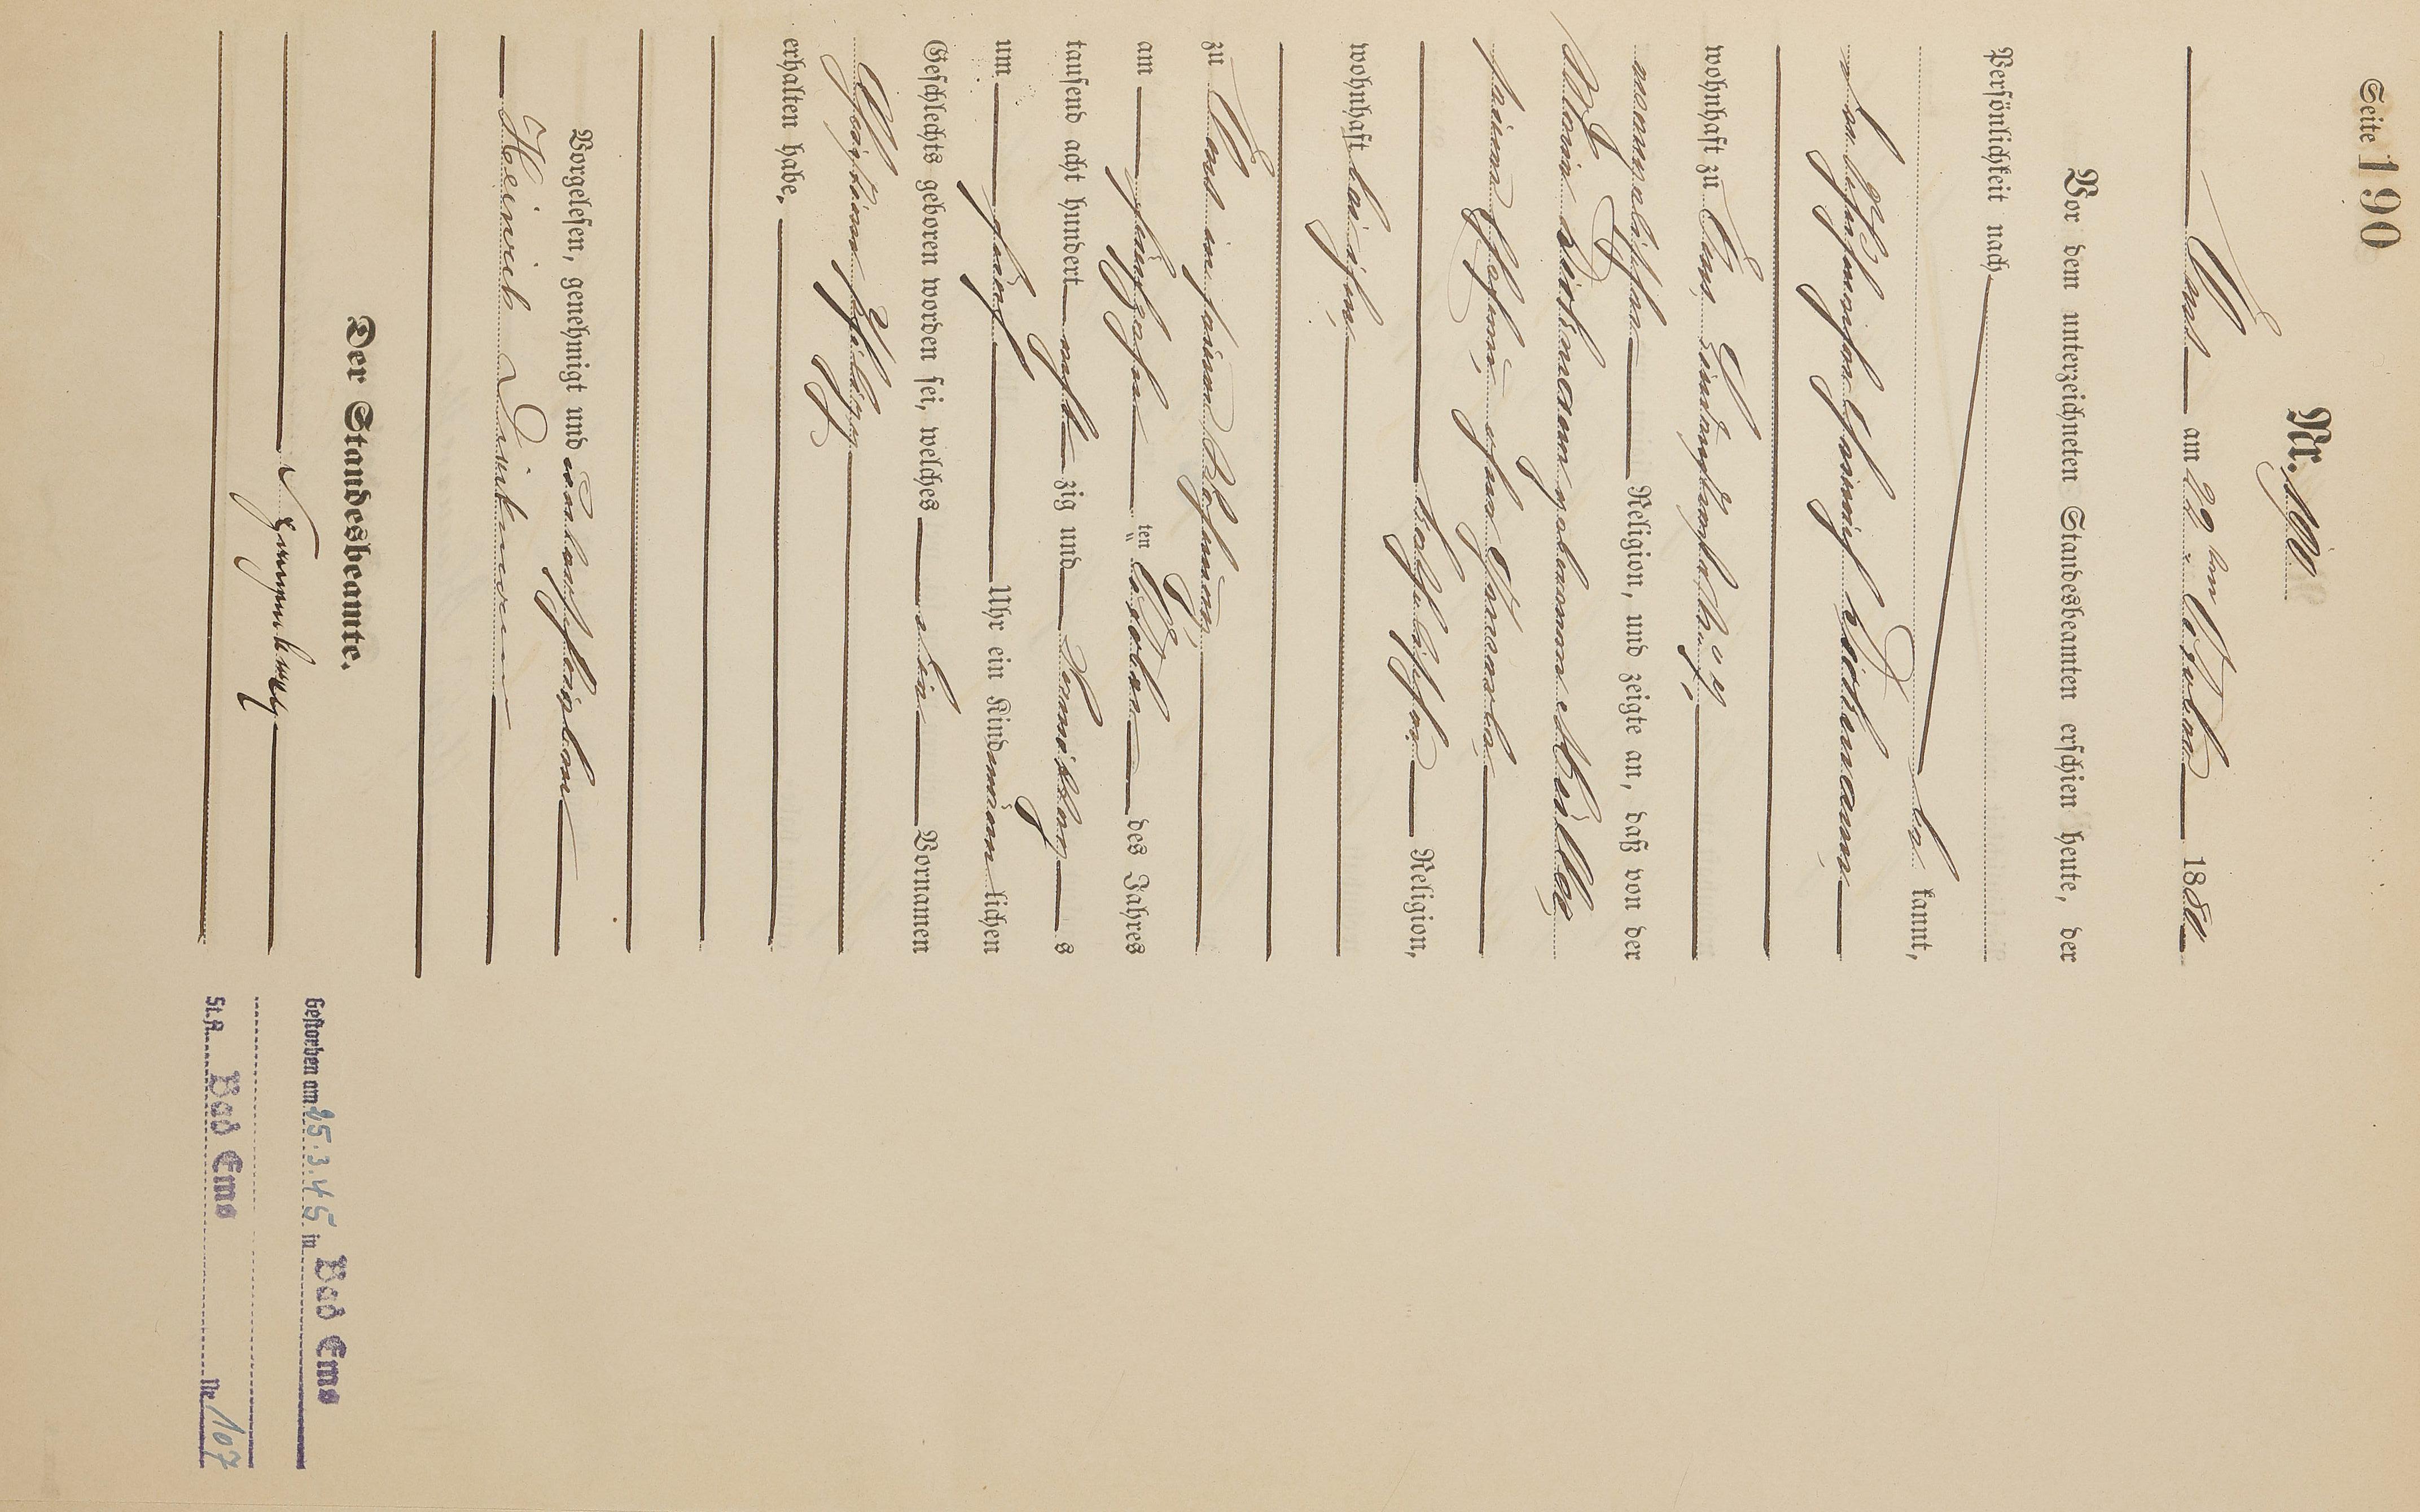 Seite 190
Nr. 190
Ems am 22ten October 1880
Vor dem unterzeichneten Standesbeamten erschien heute, der
Persönlichkeit nach
be kannt,
Heinrich Diekmann
wohnhaft zu Ems,
evangelischer Religion, und zeigte an, daß von der
Diekmann geborenen Müller,
seiner Ehefrau, ohne Gewerbe,
katholischer Religion,
wohnhaft bei ihm,
zu Ems in seiner Wohnung,
am fünfzehnten October des Jahres
tausend acht hundert acht zig und Vormittags
um fünf Uhr ein Kind männlichen
Geschlechts geboren worden sei, welches die Vornamen
Philipp
erhalten habe.
Vorgelesen, genehmigt und unterschrieben
Heinrich Diekmann
Der Standesbeamte.
Gestorben am 25.3.45 in Bad Ems
St.A. Bad Ems Nr. 107